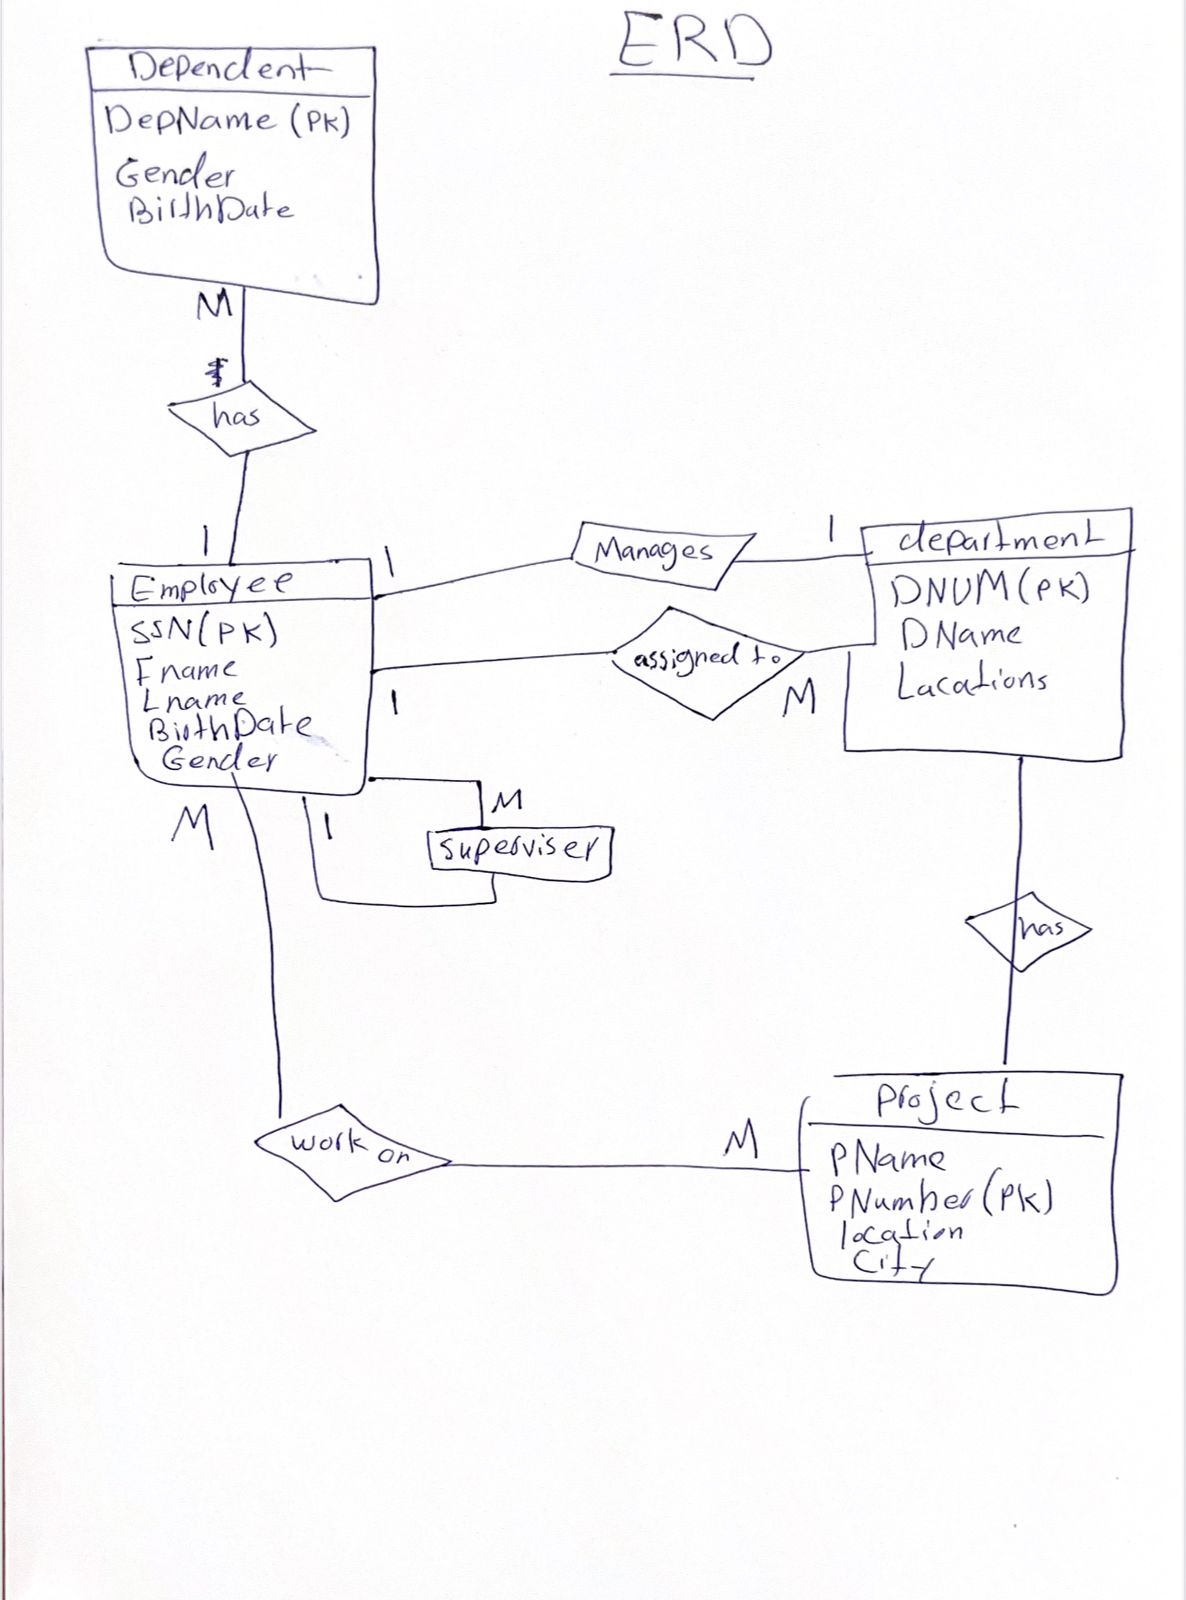 ERD
Dependent
DepName (PK)
Gender
BirthDate
M
has
1
Employee
SSN(PK)
Fname
Lname
BirthDate
Gender
1
Manages
1
department
DNUM(PK)
DName
Lacations
1
assigned to
M
M
1
M
superviser
has
work on
M
project
PName
PNumber(PK)
location
City